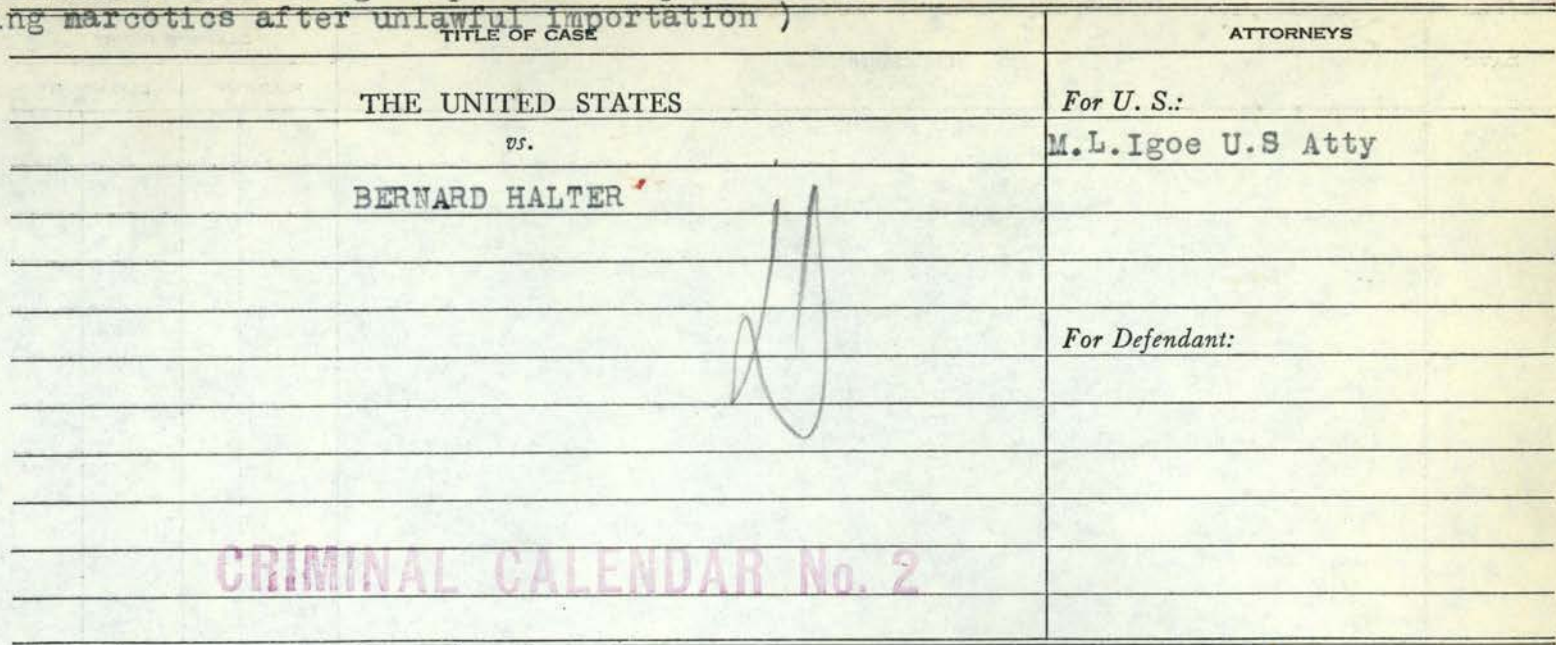 ng narcotics after unlawful importation )
TITLE OF CASE
ATTORNEYS
THE UNITED STATES
vs.
BERNARD HALTER
For U. S.:
M.L.Igoe U.S Atty
For Defendant:
CRIMINAL CALENDAR No. 2